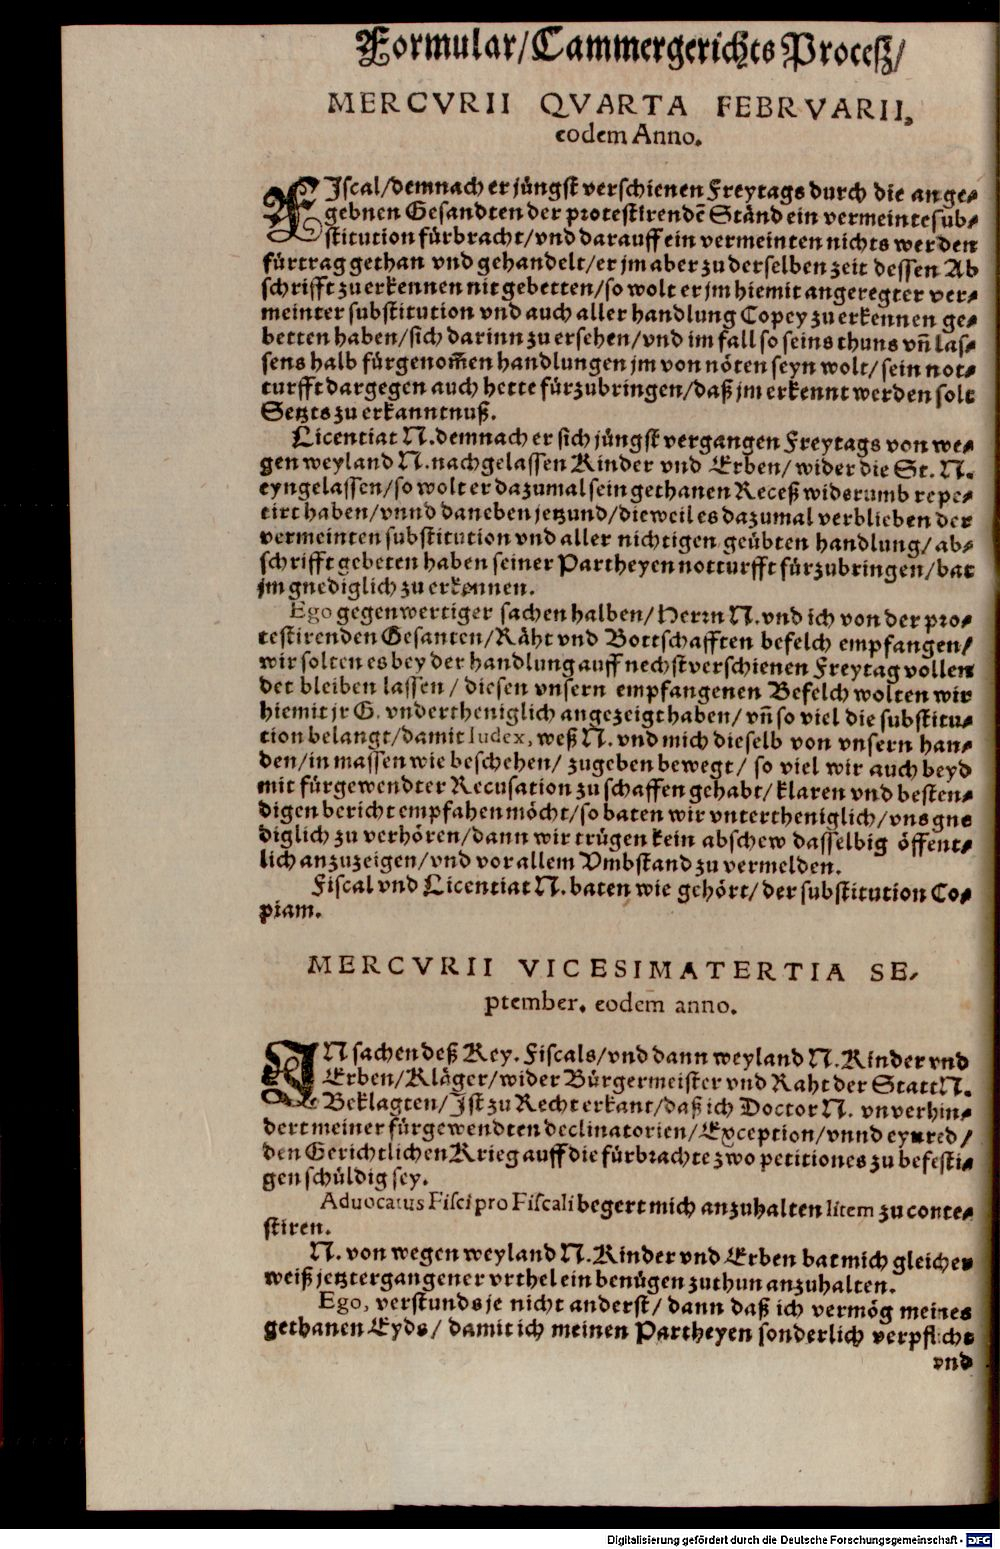 Formular/Cammergerichts Proceſz/
MERCVRII QVARTA FEBRVARII,
eodem Anno.
FIſcal/demnach er jüngſt verſchienen Freytags durch die ange-
gebnen Geſandten der proteſtirendẽ Ständ ein vermeinte ſub-
ſtitution fürbracht/vnd darauff ein vermeinten nichts werden
fürtrag gethan vnd gehandelt/er jm aber zu derſelben zeit deſſen Ab
ſchrifft zu erkennen nit gebetten/ſo wolt er jm hiemit angeregter ver-
meinter ſubſtitution vnd auch aller handlung Copey zu erkennen ge-
betten haben/ſich darinn zu erſehen/vnd im fall ſo ſeins thuns vñ laſ-
ſens halb fürgenom̃en handlungen jm von nöten ſeyn wolt/ſein not-
turfft dargegen auch hette fürzubringen/daß jm erkennt werden ſolt
Setzts zu erkanntnuß.
Licentiat N. demnach er ſich jüngſt vergangen Freytags von we-
gen weyland N. nachgelaſſen Kinder vnd Erben/wider die St. N.
eyngelaſſen/ſo wolt er dazumal ſein gethanen Receß widerumb repe-
tirt haben/vnnd daneben jetzund/dieweil es dazumal verblieben der
vermeinten ſubſtitution vnd aller nichtigen geübten handlung/ab-
ſchrifft gebeten haben ſeiner Partheyen notturfft fürzubringen/bat
jm gnediglich zu erkennen.
Ego gegenwertiger ſachen halben/Herrn N. vnd ich von der pro-
teſtirenden Geſanten/Räht vnd Bottſchafften befelch empfangen/
wir ſolten es bey der handlung auff nechſtverſchienen Freytag vollen
det bleiben laſſen/dieſen vnſern empfangenen Befelch wolten wir
hiemit jr G. vndertheniglich angezeigt haben/vñ ſo viel die ſubſtitu-
tion belangt/damit Iudex, weß N. vnd mich dieſelb von vnſern han-
den/in maſſen wie beſchehen/zugeben bewegt/ſo viel wir auch beyd
mit fürgewendter Recuſation zu ſchaffen gehabt/klaren vnd beſten-
digen bericht empfahen möcht/ſo baten wir vntertheniglich/vns gne
diglich zu verhören/dann wir trügen kein abſchew daſſelbig öffent-
lich anzuzeigen/vnd vor allem Vmbſtand zu vermelden.
Fiſcal vnd Licentiat N. baten wie gehört/der ſubſtitution Co-
piam.
MERCVRII VICESIMATERTIA SE-
ptember. eodem anno.
IN ſachen deß Key. Fiſcals/vnd dann weyland N. Kinder vnd
Erben/Kläger/wider Bürgermeiſter vnd Raht der Statt N.
Beklagten/Iſt zu Recht erkant/daß ich Doctor N. vnverhin-
dert meiner fürgewendten declinatorien/Exception/vnnd eynred/
den Gerichtlichen Krieg auff die fürbrachte zwo petitiones zu befeſti-
gen ſchüldig ſey.
Aduocatus Fiſci pro Fiſcali begert mich anzuhalten litem zu conte-
ſtiren.
N. von wegen weyland N. Kinder vnd Erben bat mich gleicher
weiß jetztergangener vrthel ein benügen zuthun anzuhalten.
Ego, verſtunds je nicht anderſt/dann daß ich vermög meines
gethanen Eyds/damit ich meinen Partheyen ſonderlich verpflicht
vnd
Digitalisierung gefördert durch die Deutsche Forschungsgemeinschaft - DFG